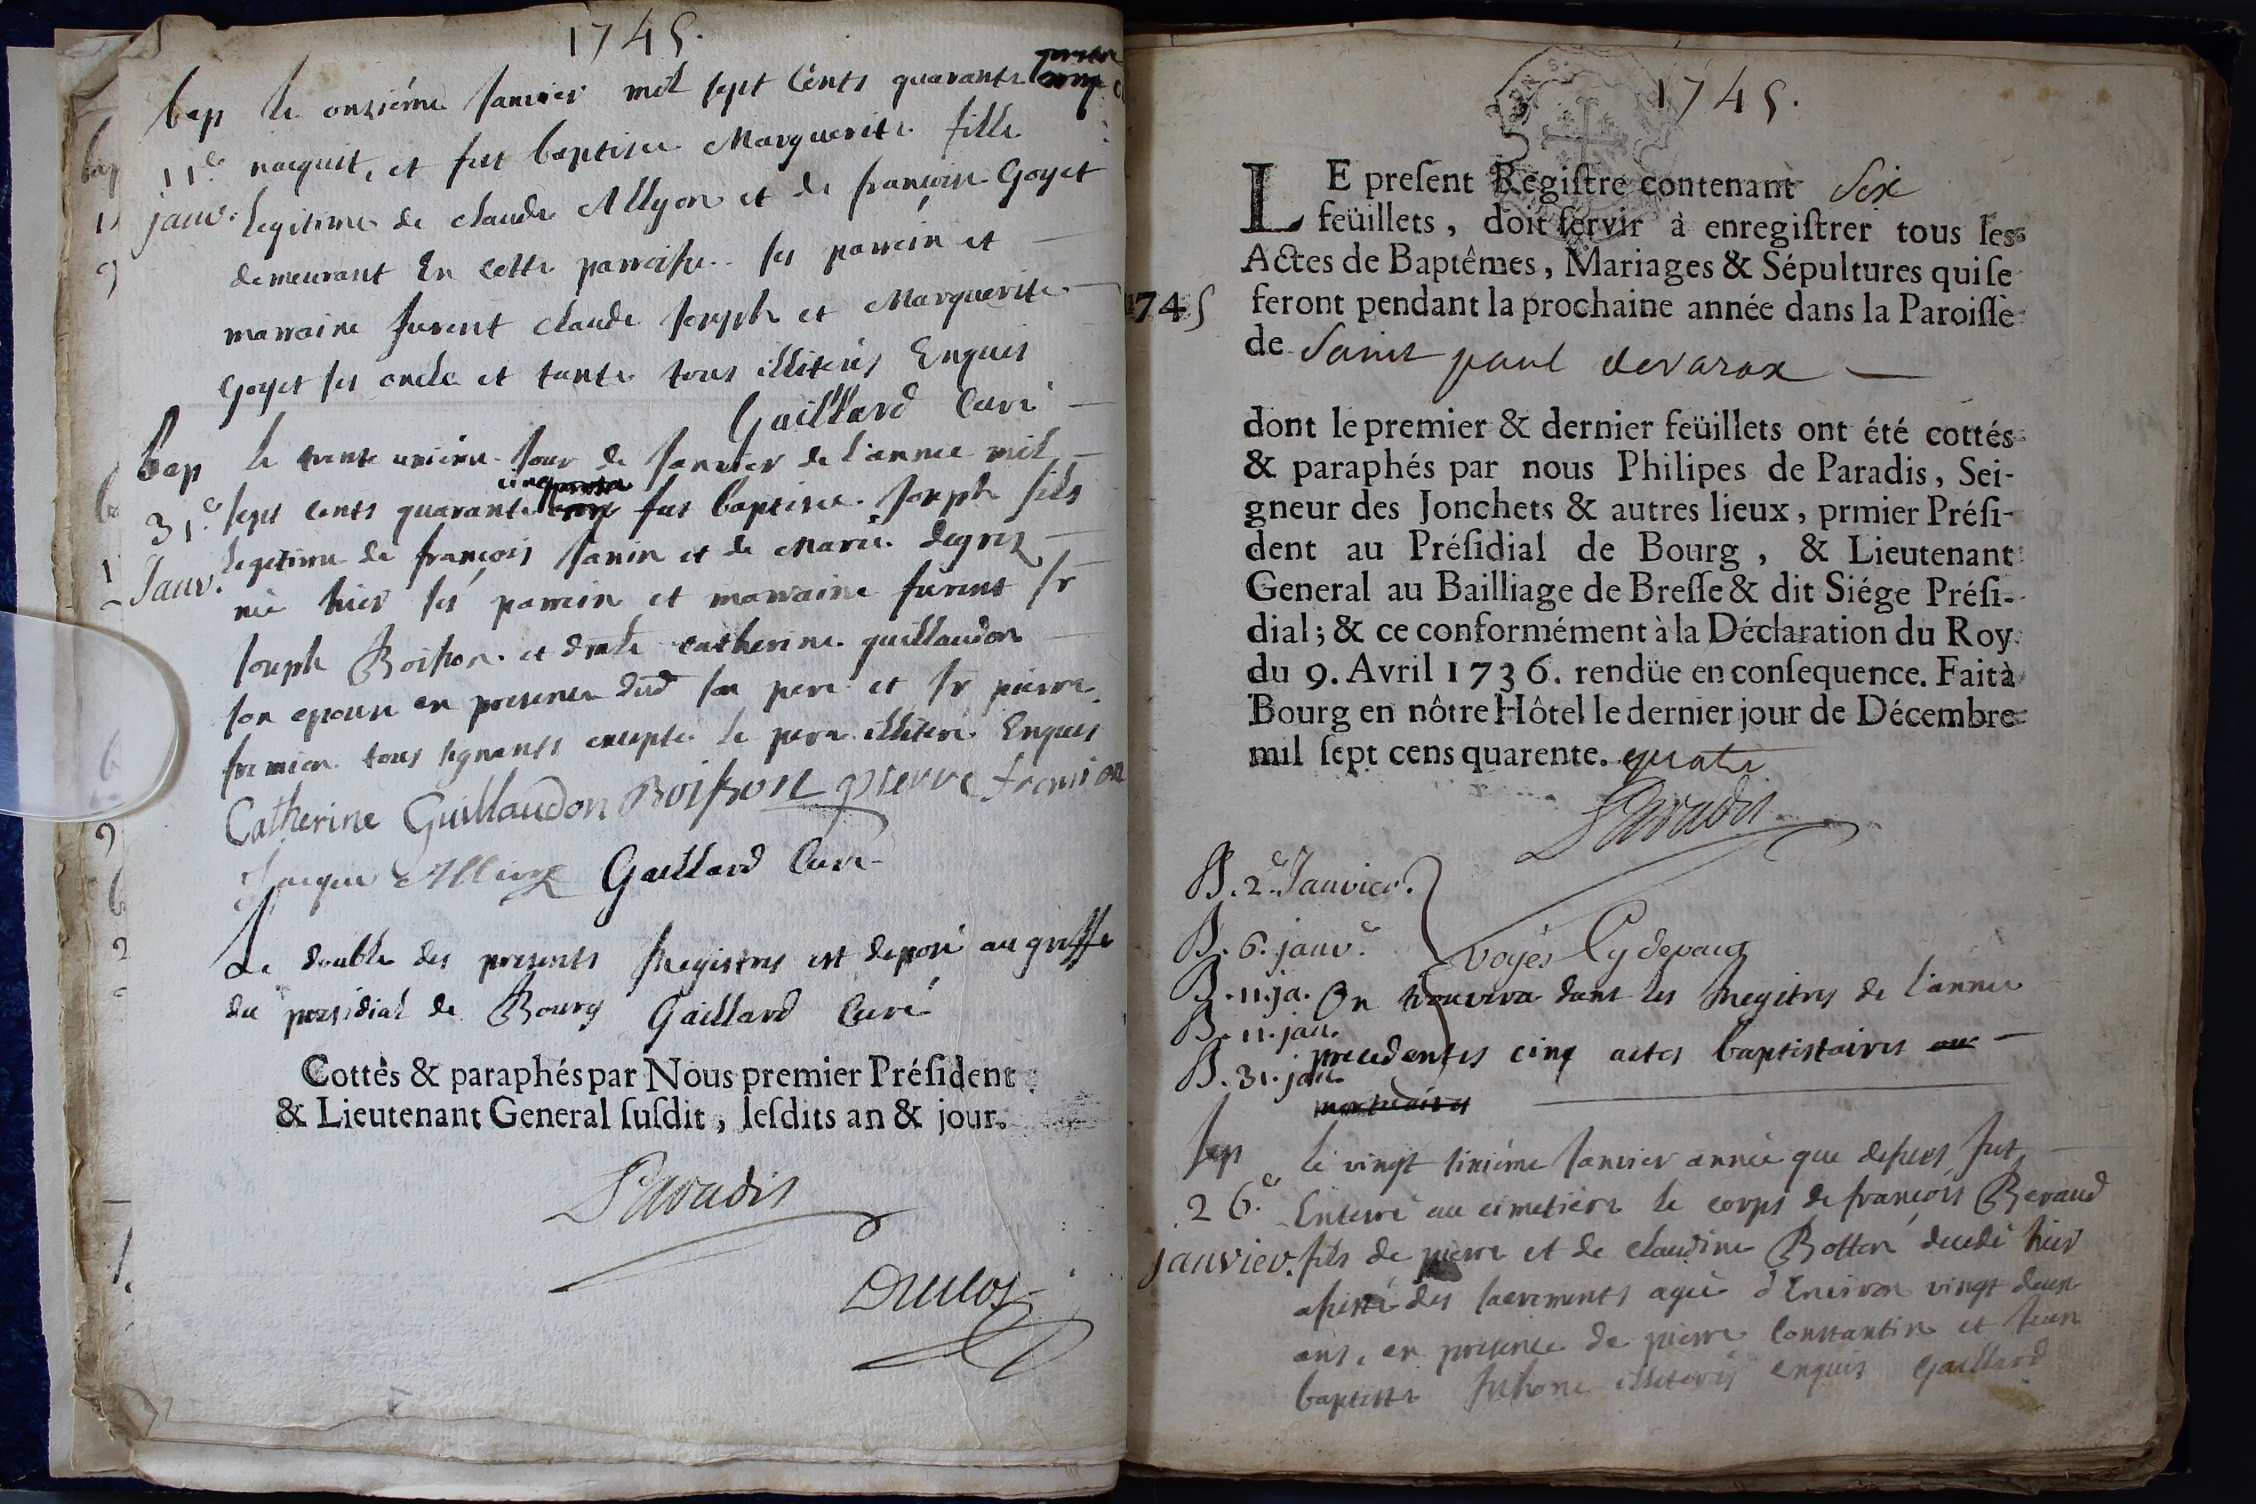 1745.
bap
11e
janv.
le onziéme Janvier mil sept Cents quarante
nacquit, et fut baptisee Marguerite fille
legitime de claude Allyon et de françoise Goyet
demeurant En cette parroisse ses parrein et
marraine furent claude Joseph et Marguerite
Goyet ses oncle et tante tous illiterés Enquis
Gaillard Curé
bap
31e
Janv.
le trente unieme Jour de Janvier de l'annee mil
sept cents quarante cinq fut baptisé Joseph fils
legitime de françois Janin et de Marie degrez
né hier ses parrein et marraine furent sr
Joseph Boisson et dmlle catherine guillaudon
son epouse en presence dud son pere et sr pierre
fremion tous signants excepté le pere illiteré Enquis
Catherine Guillaudon Boisson pierre fremion
Jacque Gaillard Curé
Le double des presents Registres est deposé au greffe
du presidial de Bourg Gaillard Curé
Cottés & paraphés par Nous premier Préſident
& Lieutenant General ſuſdit, leſdits an & jour.
Paradis
Duclos
1745.
LE preſent Regiſtre contenant Six
feüillets, doit ſervir à enregiſtrer tous les
Actes de Baptêmes, Mariages & Sépultures qui ſe
1745 feront pendant la prochaine année dans la Paroiſſe
de Saint paul de varax
dont le premier & dernier feüillets ont été cottés
& paraphés par nous Philipes de Paradis, Sei-
gneur des Jonchets & autres lieux, prmier Préſi-
dent au Préſidial de Bourg, & Lieutenant
General au Bailliage de Breſſe & dit Siége Préſi-
dial; & ce conformément à la Déclaration du Roy
du 9. Avril 1736. rendüe en conſequence. Fait à
Bourg en nôtre Hôtel le dernier jour de Décembre
mil ſept cens quarente. quatre
Paradis
B. 2e Janvier.
B. 6. janve.
B. 11. ja.
B. 11. jan.
B. 31. jan.
voyés Cy devant
On trouvera dans les Regitres de l'annee
precedentes cinq actes baptistaires ou
mortuaires
sep
26e
janvier.
le vingt sixiéme Janvier année que dessus fut
Enterré au cimetiere le corps de françois Beraud
fils de pierre et de claudine Botton decedé hier
assisté des sacrements agé d'Environ vingt deux
ans, en presence de pierre Constantin et Jean
baptiste illiterés enquis Gaillard